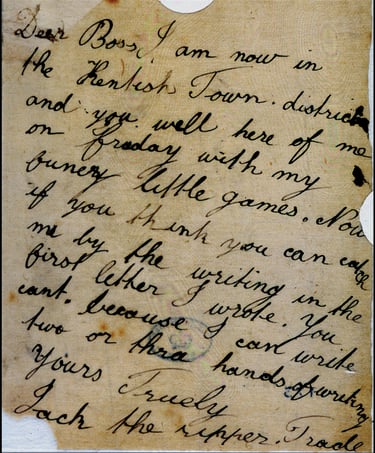 Dear Boss, I am now in
the Kentish Town. district
and you will here of me
on friday with my
funey little games. Now
if you think you can catch
me by the writing in the
first letter I wrote. You
cant. because I can write
two or thra hands of writing
Yours Truely
Jack the ripper. Trade